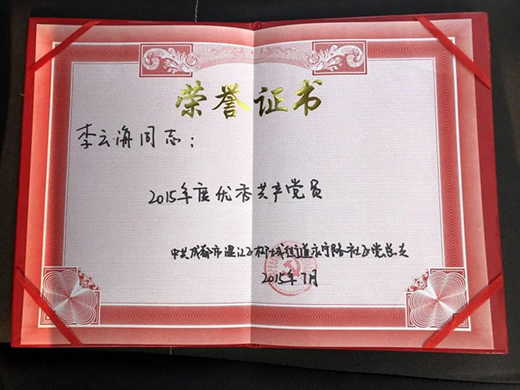 荣誉证书
李云海同志:
2015年度优秀共产党员
中共成都市温江区柳城街道永宁路社区党总支
2015年7月